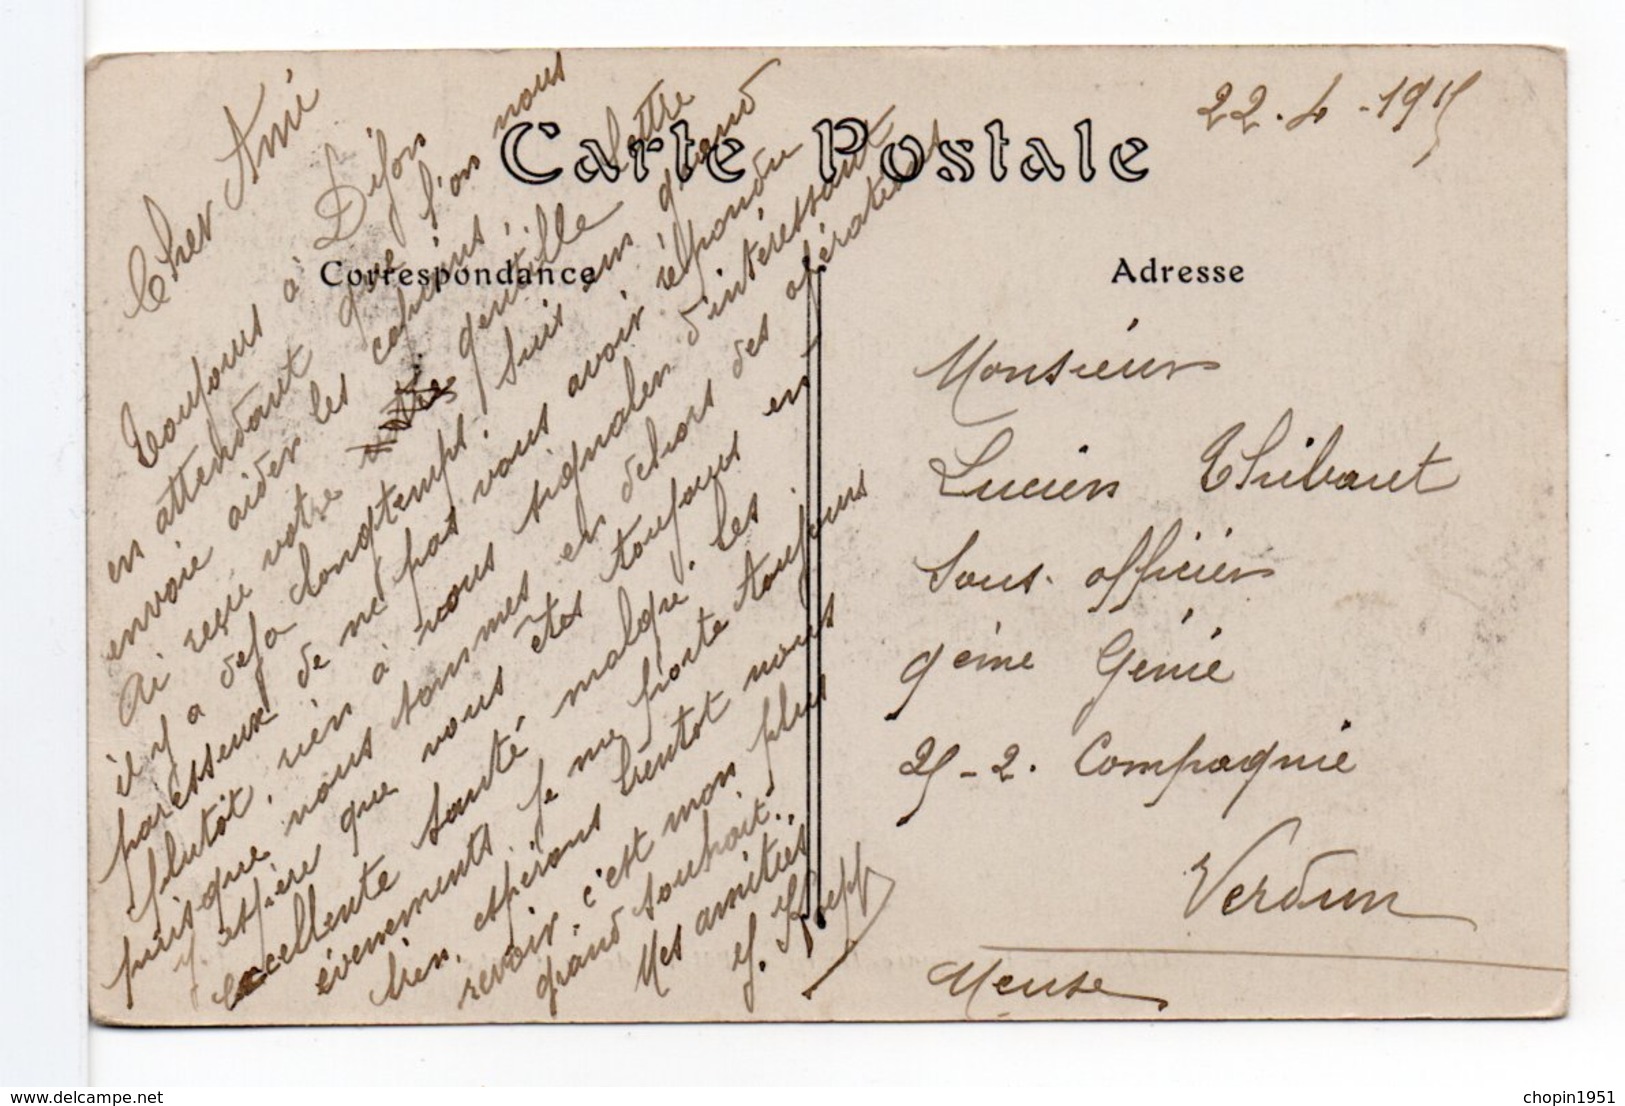 22.4-1915
Carte Postale
Correspondance
Cher Ami
Toujours à Dijon
en attendant que l'on nous
envoie aider les copains,
Ai reçu votre gentille lettre
il y a deja longtemps. Suis un grand
paresseux de ne pas vous avoir répondu
plutôt, rien à vous signaler d'interessant
puisque nous sommes en dehors des opérations
J'espère que vous êtes toujours en
excellente santé malgré les
évenements. Je me porte toujours
bien, espérons bientot nous
revoir, c'est mon plus
grand souhait..
Mes amitiés
J. Kopp
Adresse
Monsieur
Lucien Thibaut
Sous. officier
9ème Génie
25-2. Compagnie
Verdun
Meuse
https://www.delcampe.net
chopin1951